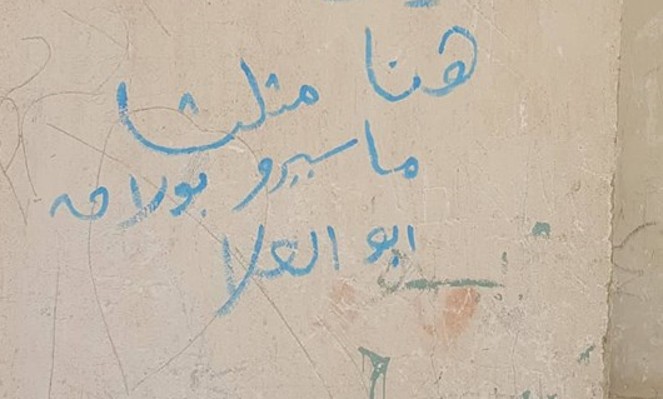 هنا مثلث
ماسبيرو بولاق
ابو العلا